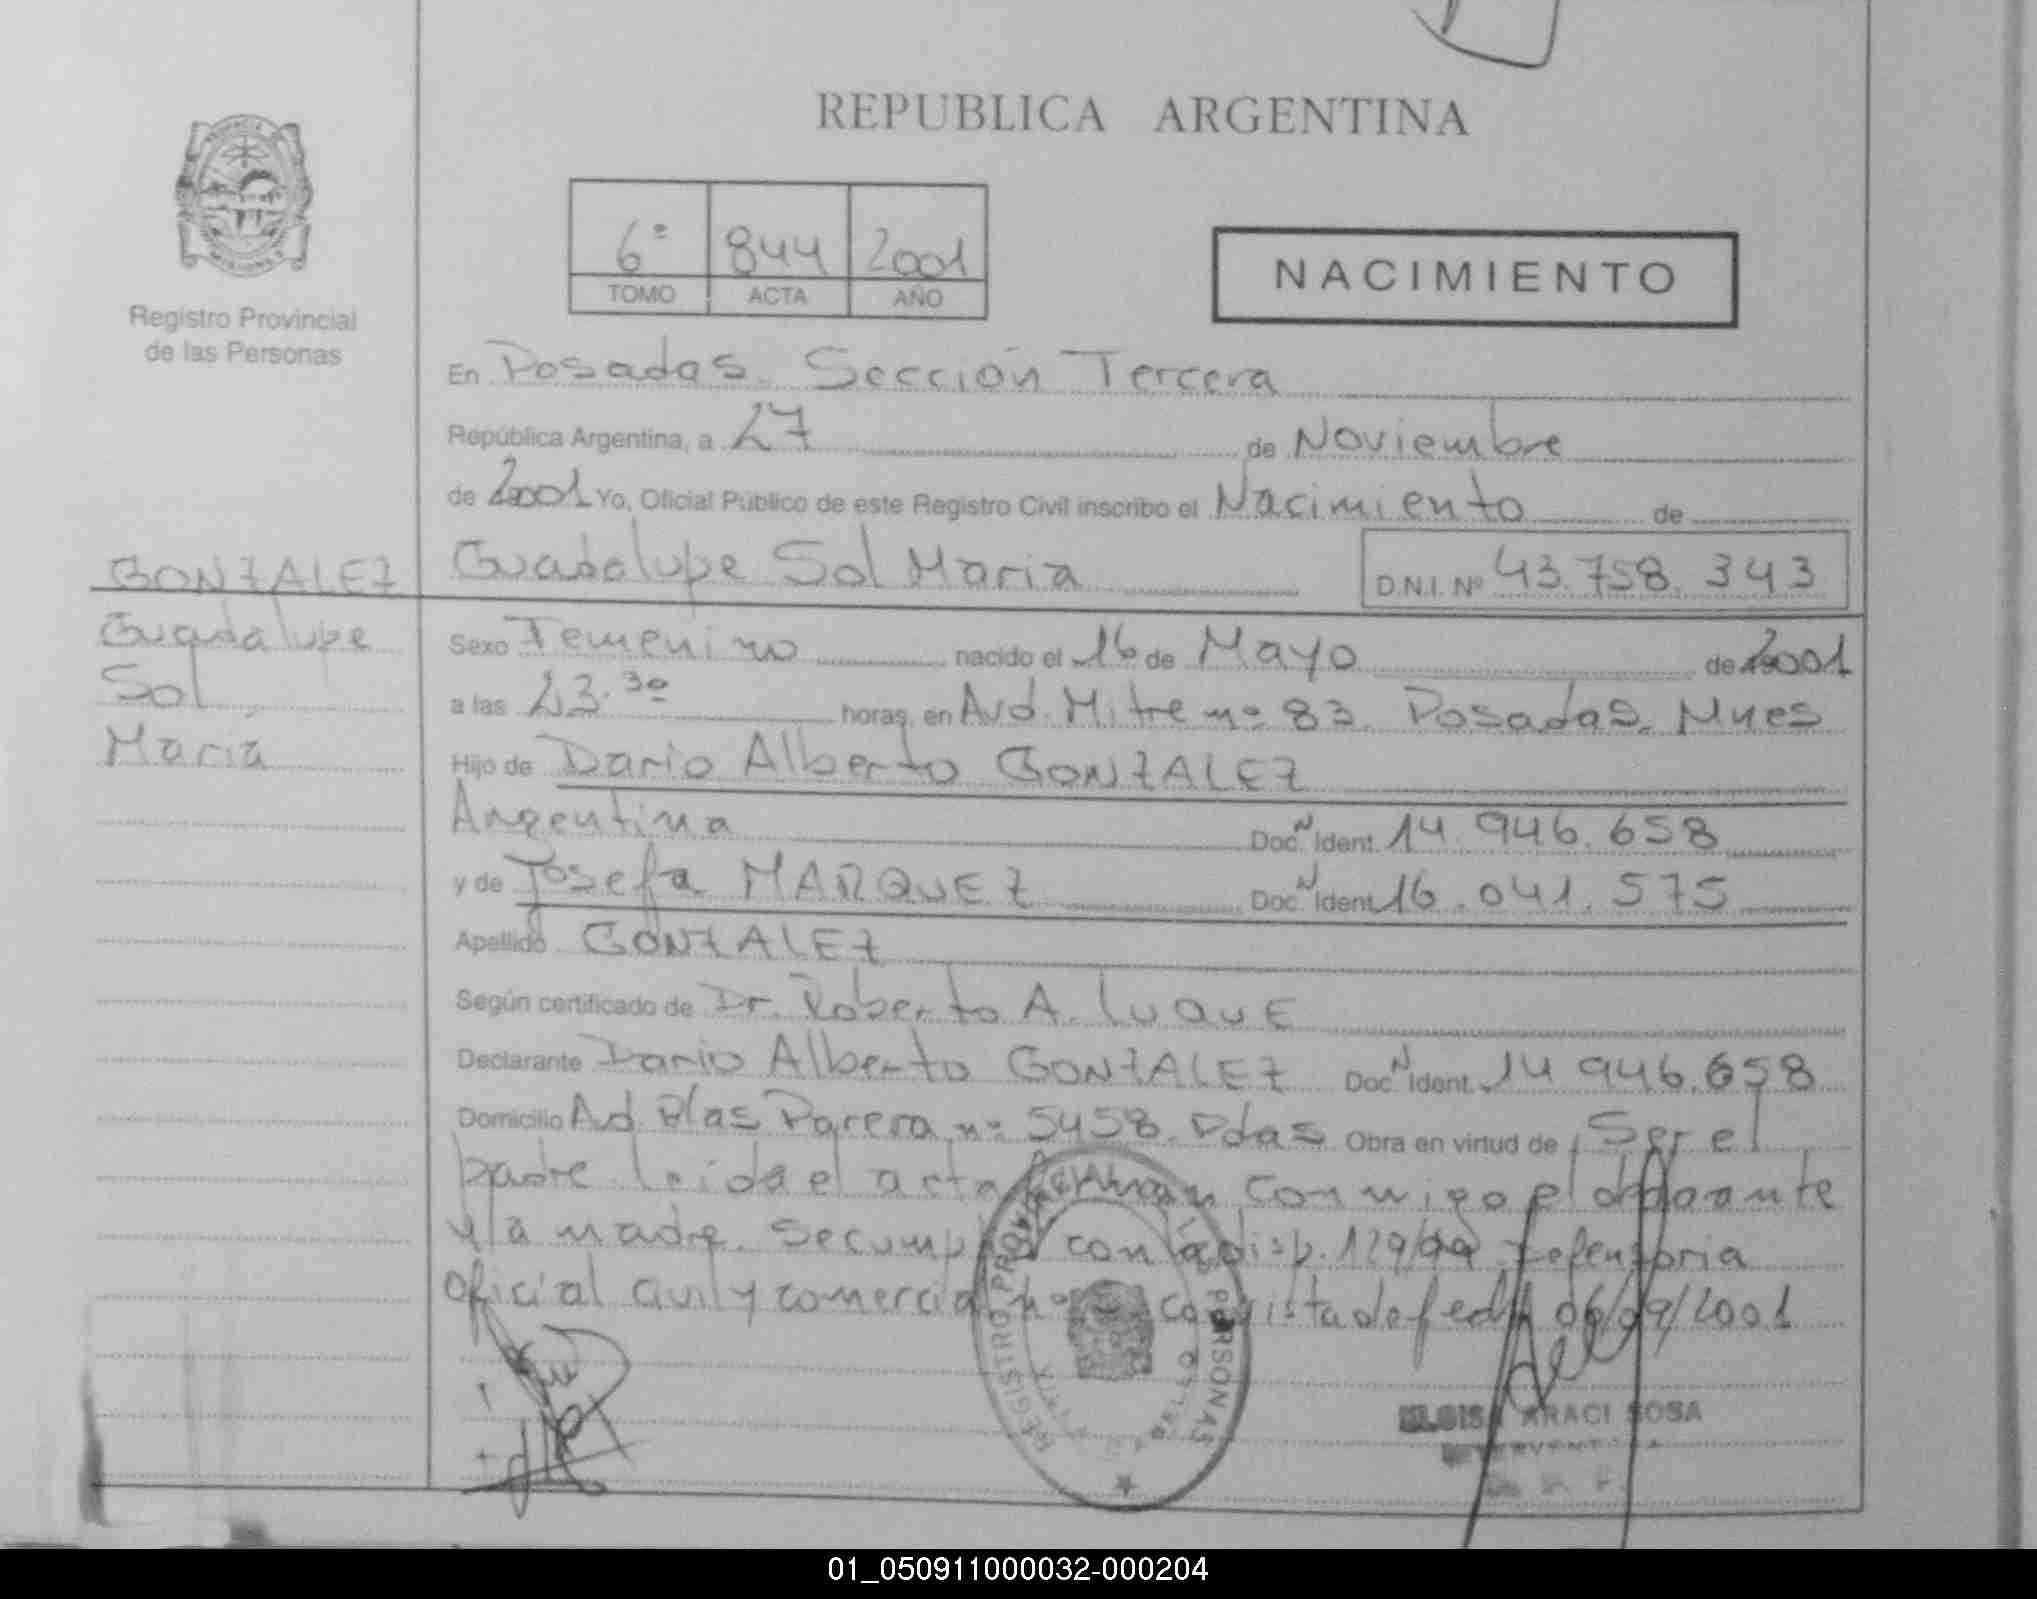 REPUBLICA ARGENTINA
PROVINCIA
MISIONES
Registro Provincial
de las Personas
6º 844 2001
TOMO ACTA AÑO
NACIMIENTO
En Posadas. Sección Tercera
República Argentina, a 27 de Noviembre
de 2001 Yo, Oficial Público de este Registro Civil inscribo el Nacimiento de
GONZALEZ
Guadalupe
Sol
María
Guadalupe Sol Maria D.N.I. Nº 43.758.343
Sexo Femenino nacido el 16 de Mayo de 2001
a las 23.30 horas, en Avd. Mitre nº 83. Posadas. Mnes
Hijo de Dario Alberto GONZALEZ
Argentina Doc. N Ident. 14.946.658
y de Josefa MARQUEZ Doc. N Ident. 16.041.575
Apellido GONZALEZ
Según certificado de Dr. Roberto A. LUQUE
Declarante Dario Alberto GONZALEZ Doc. N Ident. 14 946.658
Domicilio Avd. Blas Parera nº 5458. Pdas Obra en virtud de Ser el
padre. Leida el acta conmigo el
y la madre. Se con la disp. 129/99 Defensoria
Oficial Civil y comercial nº vista de fecha 06/09/2001
REGISTRO PROVINCIAL DE LAS PERSONAS
ARACI SOSA
01_050911000032-000204